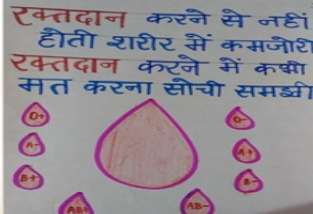 रक्तदान करने से नहीं
होती शरीर में कमजोरी
रक्तदान करने में कभी
मत करना सोची समझी
O+
O-
A-
A+
B+
B-
AB+
AB-